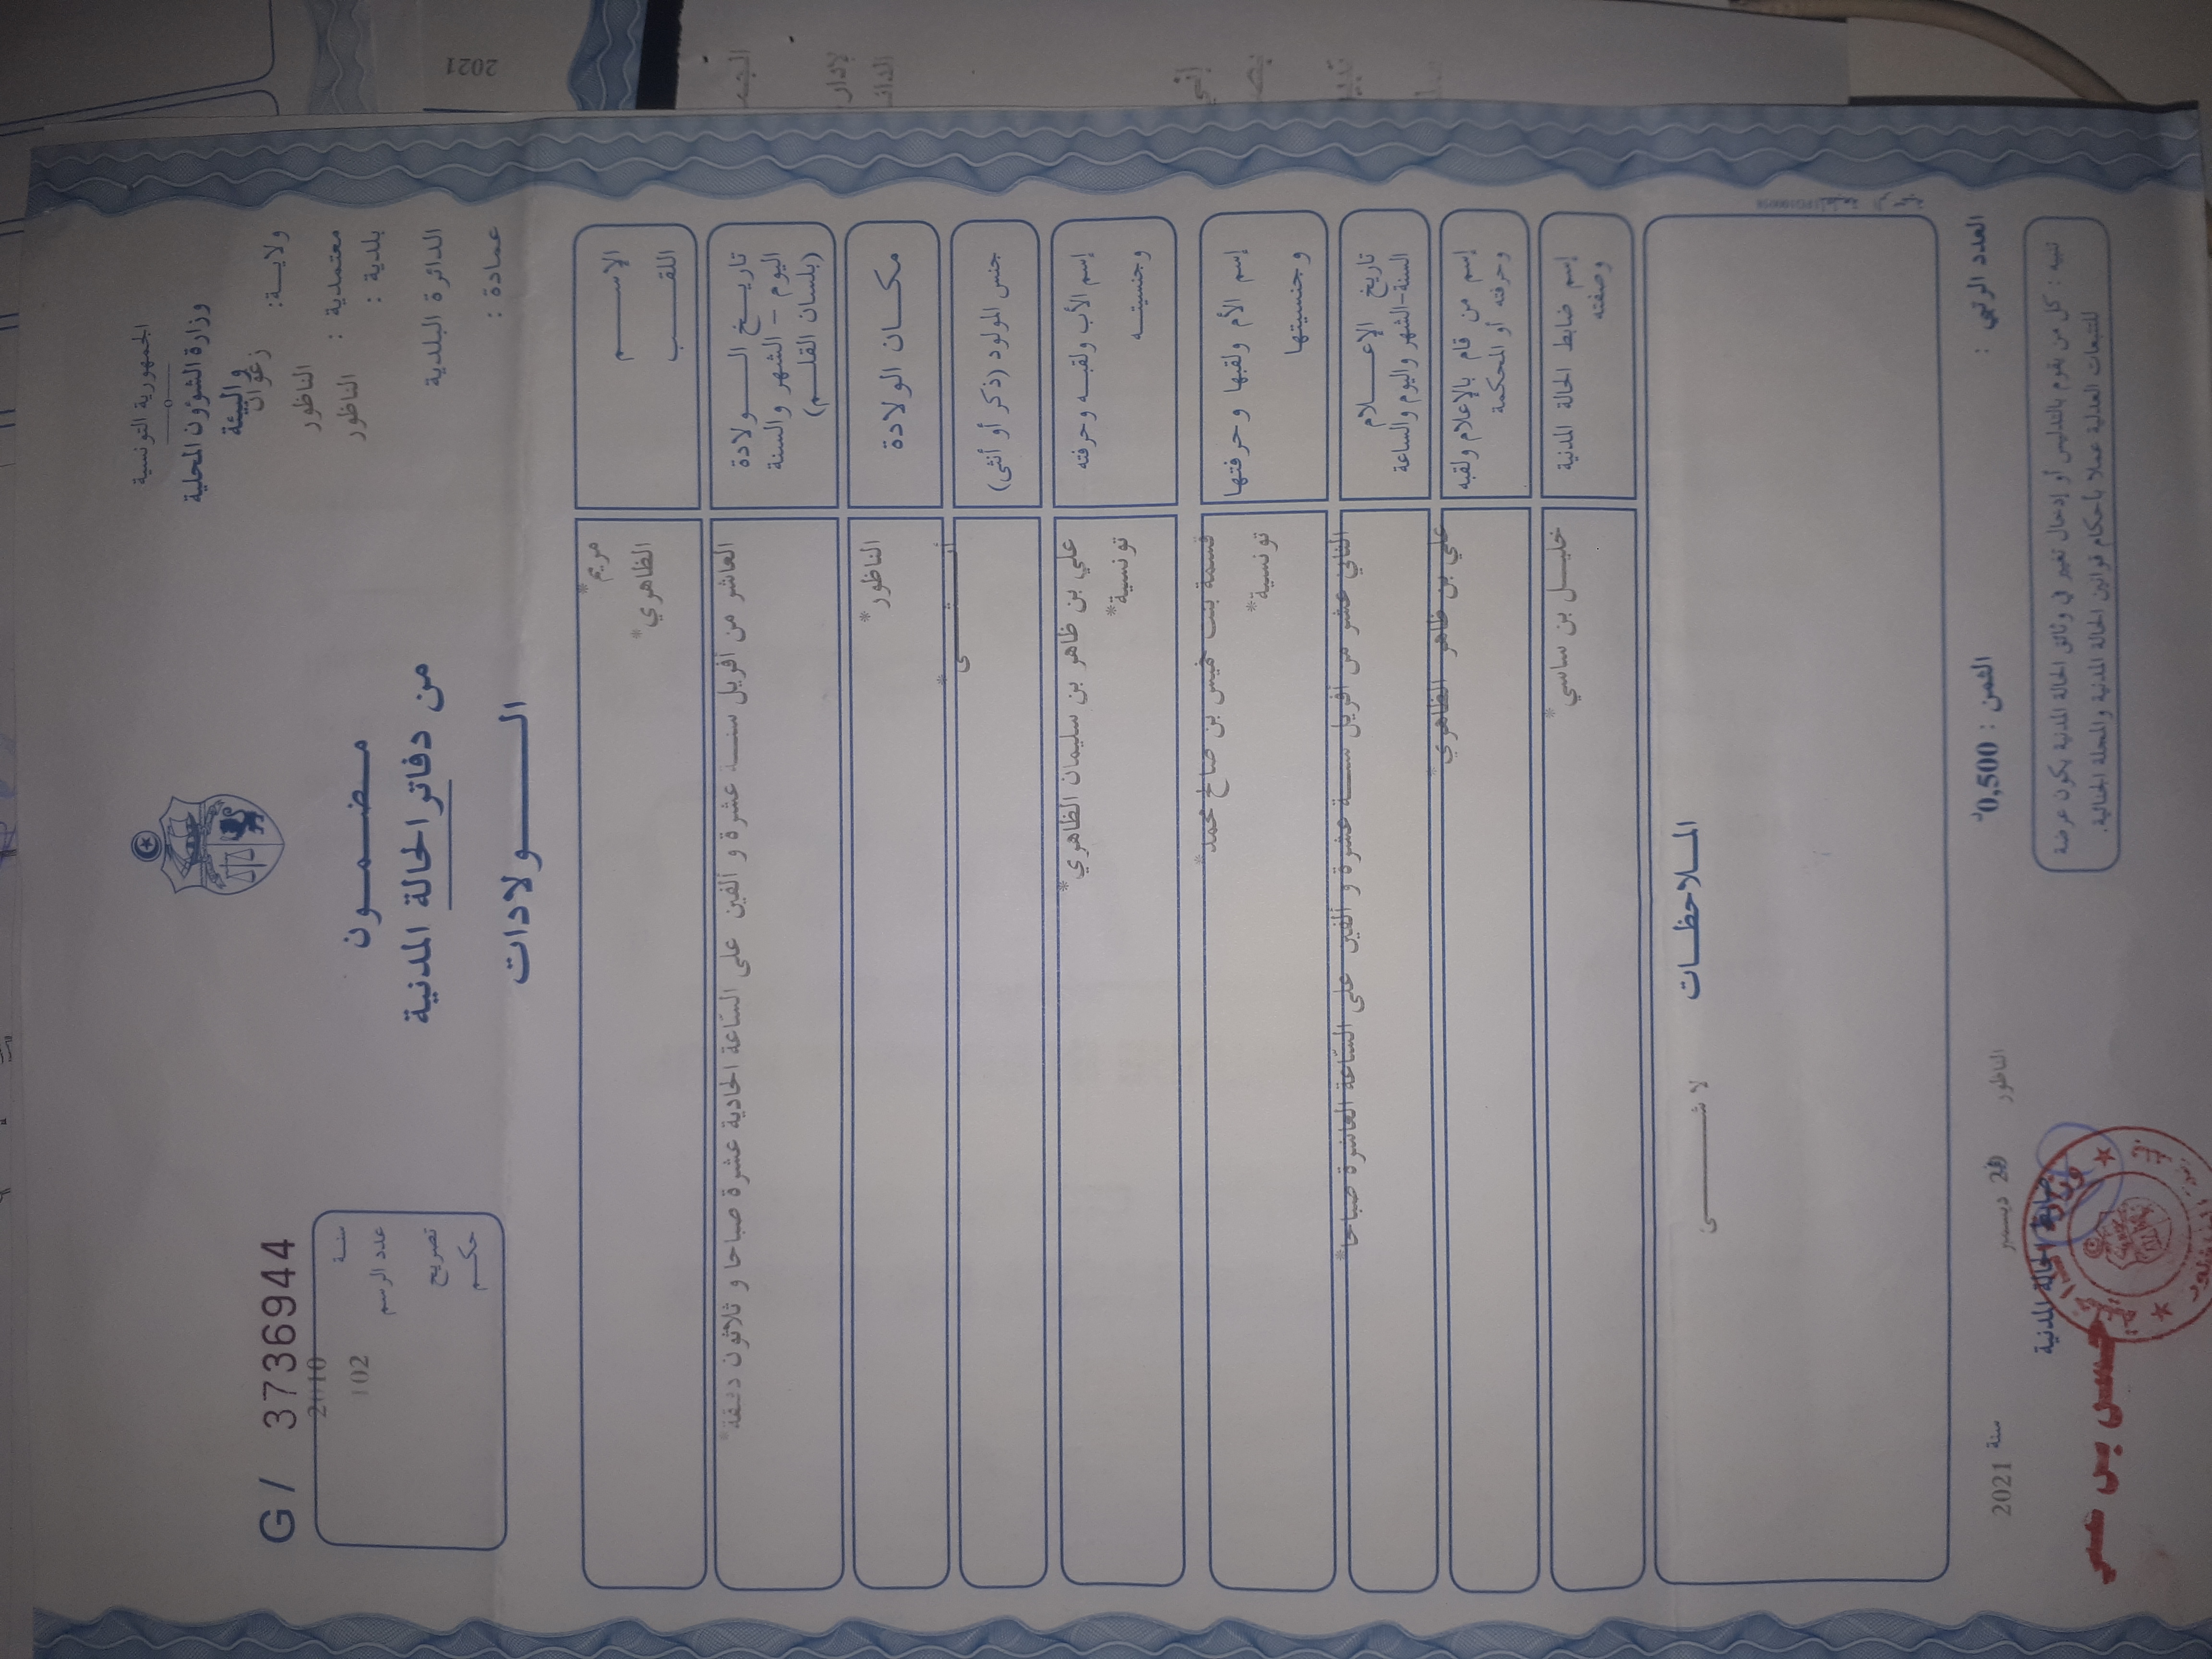 الجمهورية التونسية
وزارة الشؤون المحلية
والبيئة
ولايـــة: زغوان
معتمدية : الناظور
بلدية : الناظور
الدائرة البلدية
عمادة :
مضمـــون
من دفاتر الحالة المدنية
الــــولادات
G / 3736944
سنـة 2010
عدد الرسم 102
تصريح
حكـم
الاســـم مريم*
اللقـــب الظاهري*
تاريـــخ الـــولادة
اليوم - الشهر والسنة
(بلسان القلـــم)
العاشر من أفريل سنــة عشرة و ألفين على الساعة الحادية عشرة صباحا و ثلاثون دقيقة*
مكـــان الولادة الناظور*
جنس المولود (ذكر أو أنثى) أنـــثـــى*
إسم الأب ولقبـه وحرفته علي بن ظاهر بن سليمان الظاهري*
وجنسيتـــه تونسية*
إسم الأم ولقبها وحرفتها قسمة بنت خميس بن صالح محمد*
وجنسيتها تونسية*
تاريخ الإعـــلام
السنة-الشهر واليوم والساعة
الثاني عشر من أفريل سنــة عشرة و ألفين على الساعة العاشرة صباحا*
إسم من قام بالإعلام ولقبه
وحرفته أو المحكمة
علي بن ظاهر الظاهري*
إسم ضابط الحالة المدنية
وصفته
خليـــل بن ساسي*
المـــلاحظـــات
لا شـــــى
العدد الرتبي :
الثمن : 0,500د
الناظور
ديسمبر
سنة 2021
تنبيه : كل من يقوم بالتدليس أو إدخال تغيير في وثائق الحالة المدنية يكون عرضة
للتتبعات العدلية عملا بأحكام قوانين الحالة المدنية والمجلة الجنائية.
ضابط الحالة المدنية
2021